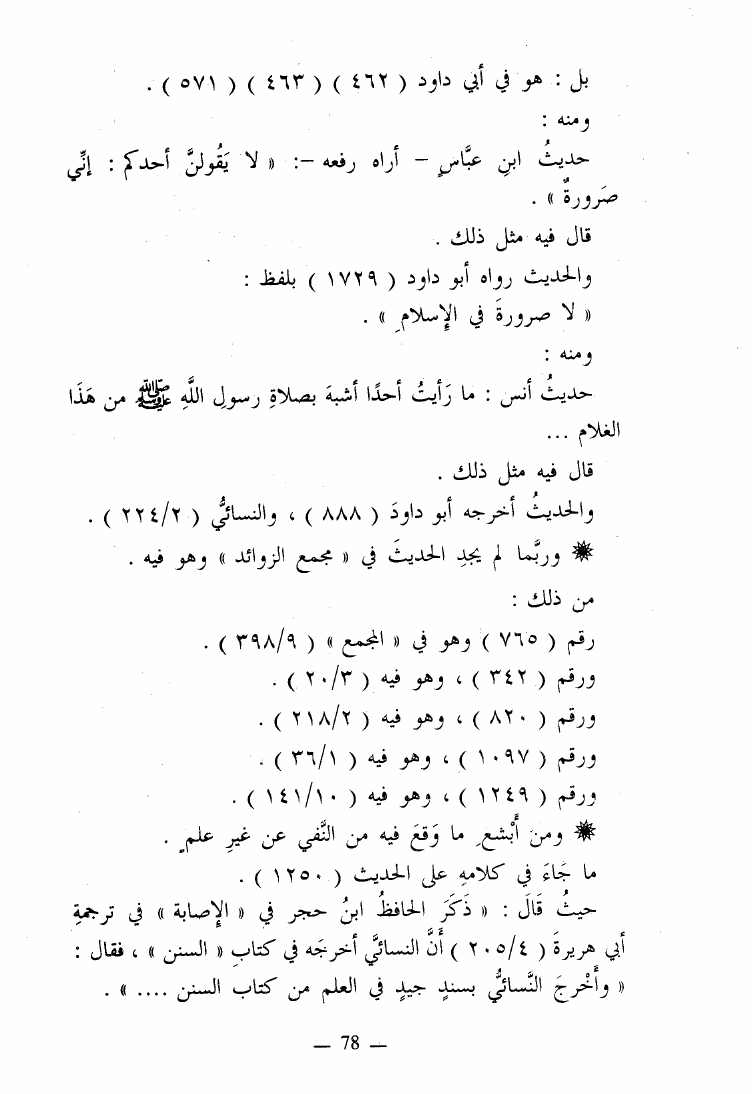 بل : هو في أبي داود ( ٤٦٢ ) ( ٤٦٣ ) ( ٥٧١ ) .
ومنه :
حديثُ ابنِ عبَّاسٍ – أراه رفعه –: « لا يَقُولنَّ أحدكم : إنِّي
صَرورةٌ » .
قال فيه مثل ذلك .
والحديث رواه أبو داود ( ١٧٢٩ ) بلفظ :
« لا صرورةَ في الإسلامِ » .
ومنه :
حديثُ أنس : ما رَأيتُ أحدًا أشبهَ بصلاةِ رسولِ اللَّهِ ﷺ من هَذَا
الغلام ...
قال فيه مثل ذلك .
والحديثُ أخرجه أبو داودَ ( ٨٨٨ ) ، والنسائيُّ ( ٢٢٤/٢ ) .
❋ وربَّما لم يجدِ الحديثَ في « مجمع الزوائد » وهو فيه .
من ذلك :
رقم ( ٧٦٥ ) وهو في « المجمع » ( ٣٩٨/٩ ) .
ورقم ( ٣٤٢ ) ، وهو فيه ( ٢٠/٣ ) .
ورقم ( ٨٢٠ ) ، وهو فيه ( ٢١٨/٢ ) .
ورقم ( ١٠٩٧ ) ، وهو فيه ( ٣٦/١ ) .
ورقم ( ١٢٤٩ ) ، وهو فيه ( ١٤١/١٠ ) .
❋ ومن أَبْشعِ ما وَقعَ فيه من النَّفي عن غيرِ علمٍ .
ما جَاءَ في كلامهِ على الحديث ( ١٢٥٠ ) .
حيثُ قَالَ : « ذَكَرَ الحافظُ ابنُ حجر في « الإصابة » في ترجمةِ
أبي هريرةَ ( ٢٠٥/٤ ) أَنَّ النسائيَّ أخرجَه في كتابِ « السنن » ، فقال :
« وأَخْرجَ النَّسائيُّ بسندٍ جيدٍ في العلم من كتاب السنن .... » .
— 78 —